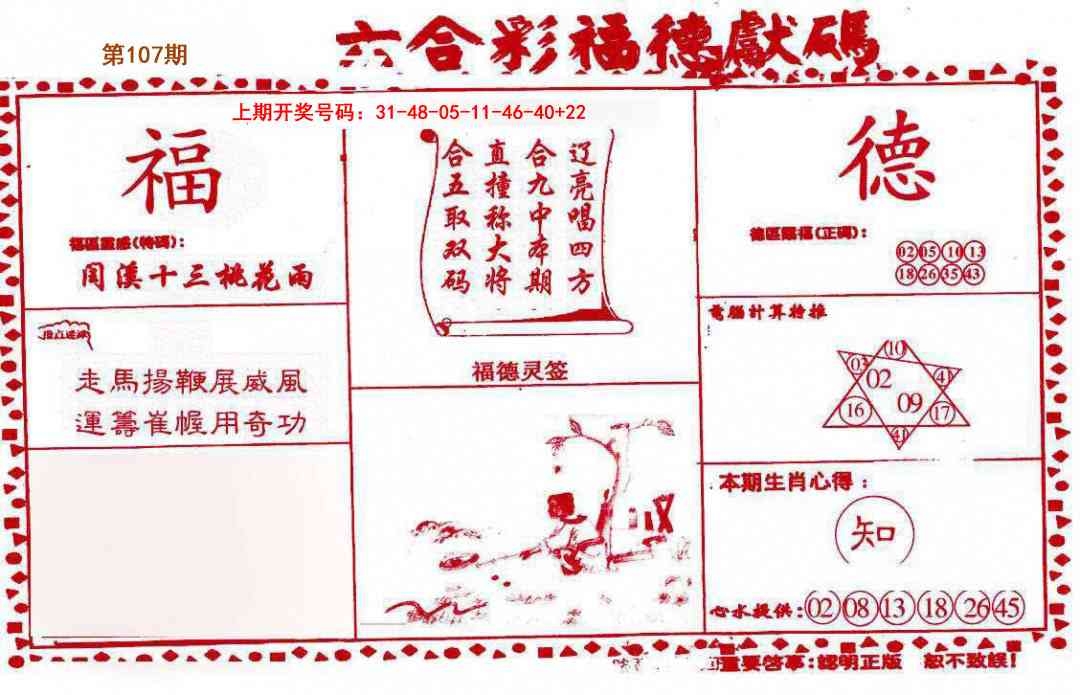 第107期
六合彩福德獻碼
上期开奖号码：31-48-05-11-46-40+22
福
福區靈感(特碼)：
閏溪十三桃花雨
走馬揚鞭展威風
運籌崔幄用奇功
辽亮唱四方
合九中本期
直撞称大将
合五取双码
福德灵签
德
德區賜福(正碼)：
02 05 10 13
18 26 35 43
電腦計算特推
10
03 41
02
16 09 17
41
本期生肖心得：
知
心水提供：02 08 13 18 26 45
重要啓事：認明正版 恕不致誤！